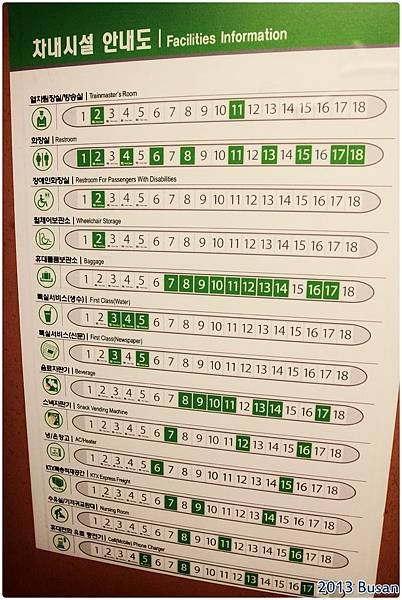 차내시설 안내도 | Facilities Information
열차팀장실/방송실 | Trainmaster's Room
1 2 3 4 5 6 7 8 9 10 11 12 13 14 15 16 17 18
화장실 | Restroom
1 2 3 4 5 6 7 8 9 10 11 12 13 14 15 16 17 18
장애인화장실 | Restroom For Passengers With Disabilities
1 2 3 4 5 6 7 8 9 10 11 12 13 14 15 16 17 18
휠체어보관소 | Wheelchair Storage
1 2 3 4 5 6 7 8 9 10 11 12 13 14 15 16 17 18
휴대물품보관소 | Baggage
1 2 3 4 5 6 7 8 9 10 11 12 13 14 15 16 17 18
특실서비스(생수) | First Class(Water)
1 2 3 4 5 6 7 8 9 10 11 12 13 14 15 16 17 18
특실서비스(신문) | First Class(Newspaper)
1 2 3 4 5 6 7 8 9 10 11 12 13 14 15 16 17 18
음료자판기 | Beverage
1 2 3 4 5 6 7 8 9 10 11 12 13 14 15 16 17 18
스낵자판기 | Snack Vending Machine
1 2 3 4 5 6 7 8 9 10 11 12 13 14 15 16 17 18
냉/온장고 | AC/Heater
1 2 3 4 5 6 7 8 9 10 11 12 13 14 15 16 17 18
KTX특송적재공간 | KTX Express Freight
1 2 3 4 5 6 7 8 9 10 11 12 13 14 15 16 17 18
수유실/기저귀교환대 | Nursing Room
1 2 3 4 5 6 7 8 9 10 11 12 13 14 15 16 17 18
휴대전화 유료 충전기 | Cell(Mobile) Phone Charger
1 2 3 4 5 6 7 8 9 10 11 12 13 14 15 16 17
2013 Busan